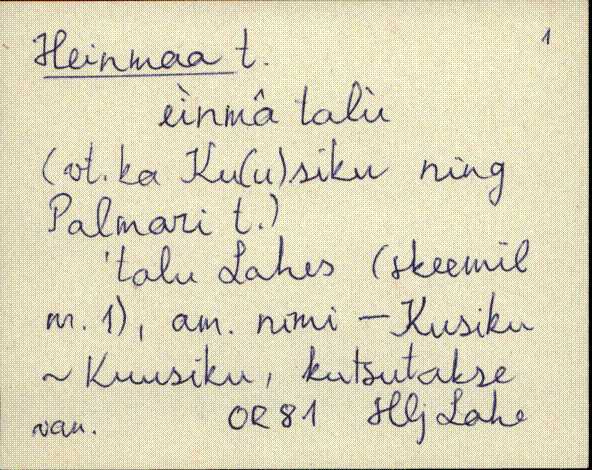 Heinmaa t. 1
èinmâ talù
(vt. ka Ku(u)siku ning
Palmari t.)
'talu Lahes (skeemil
nr. 1), am. nimi – Kusiku
~ Kuusiku, kutsutakse
van. OR81 Hlj Lahe